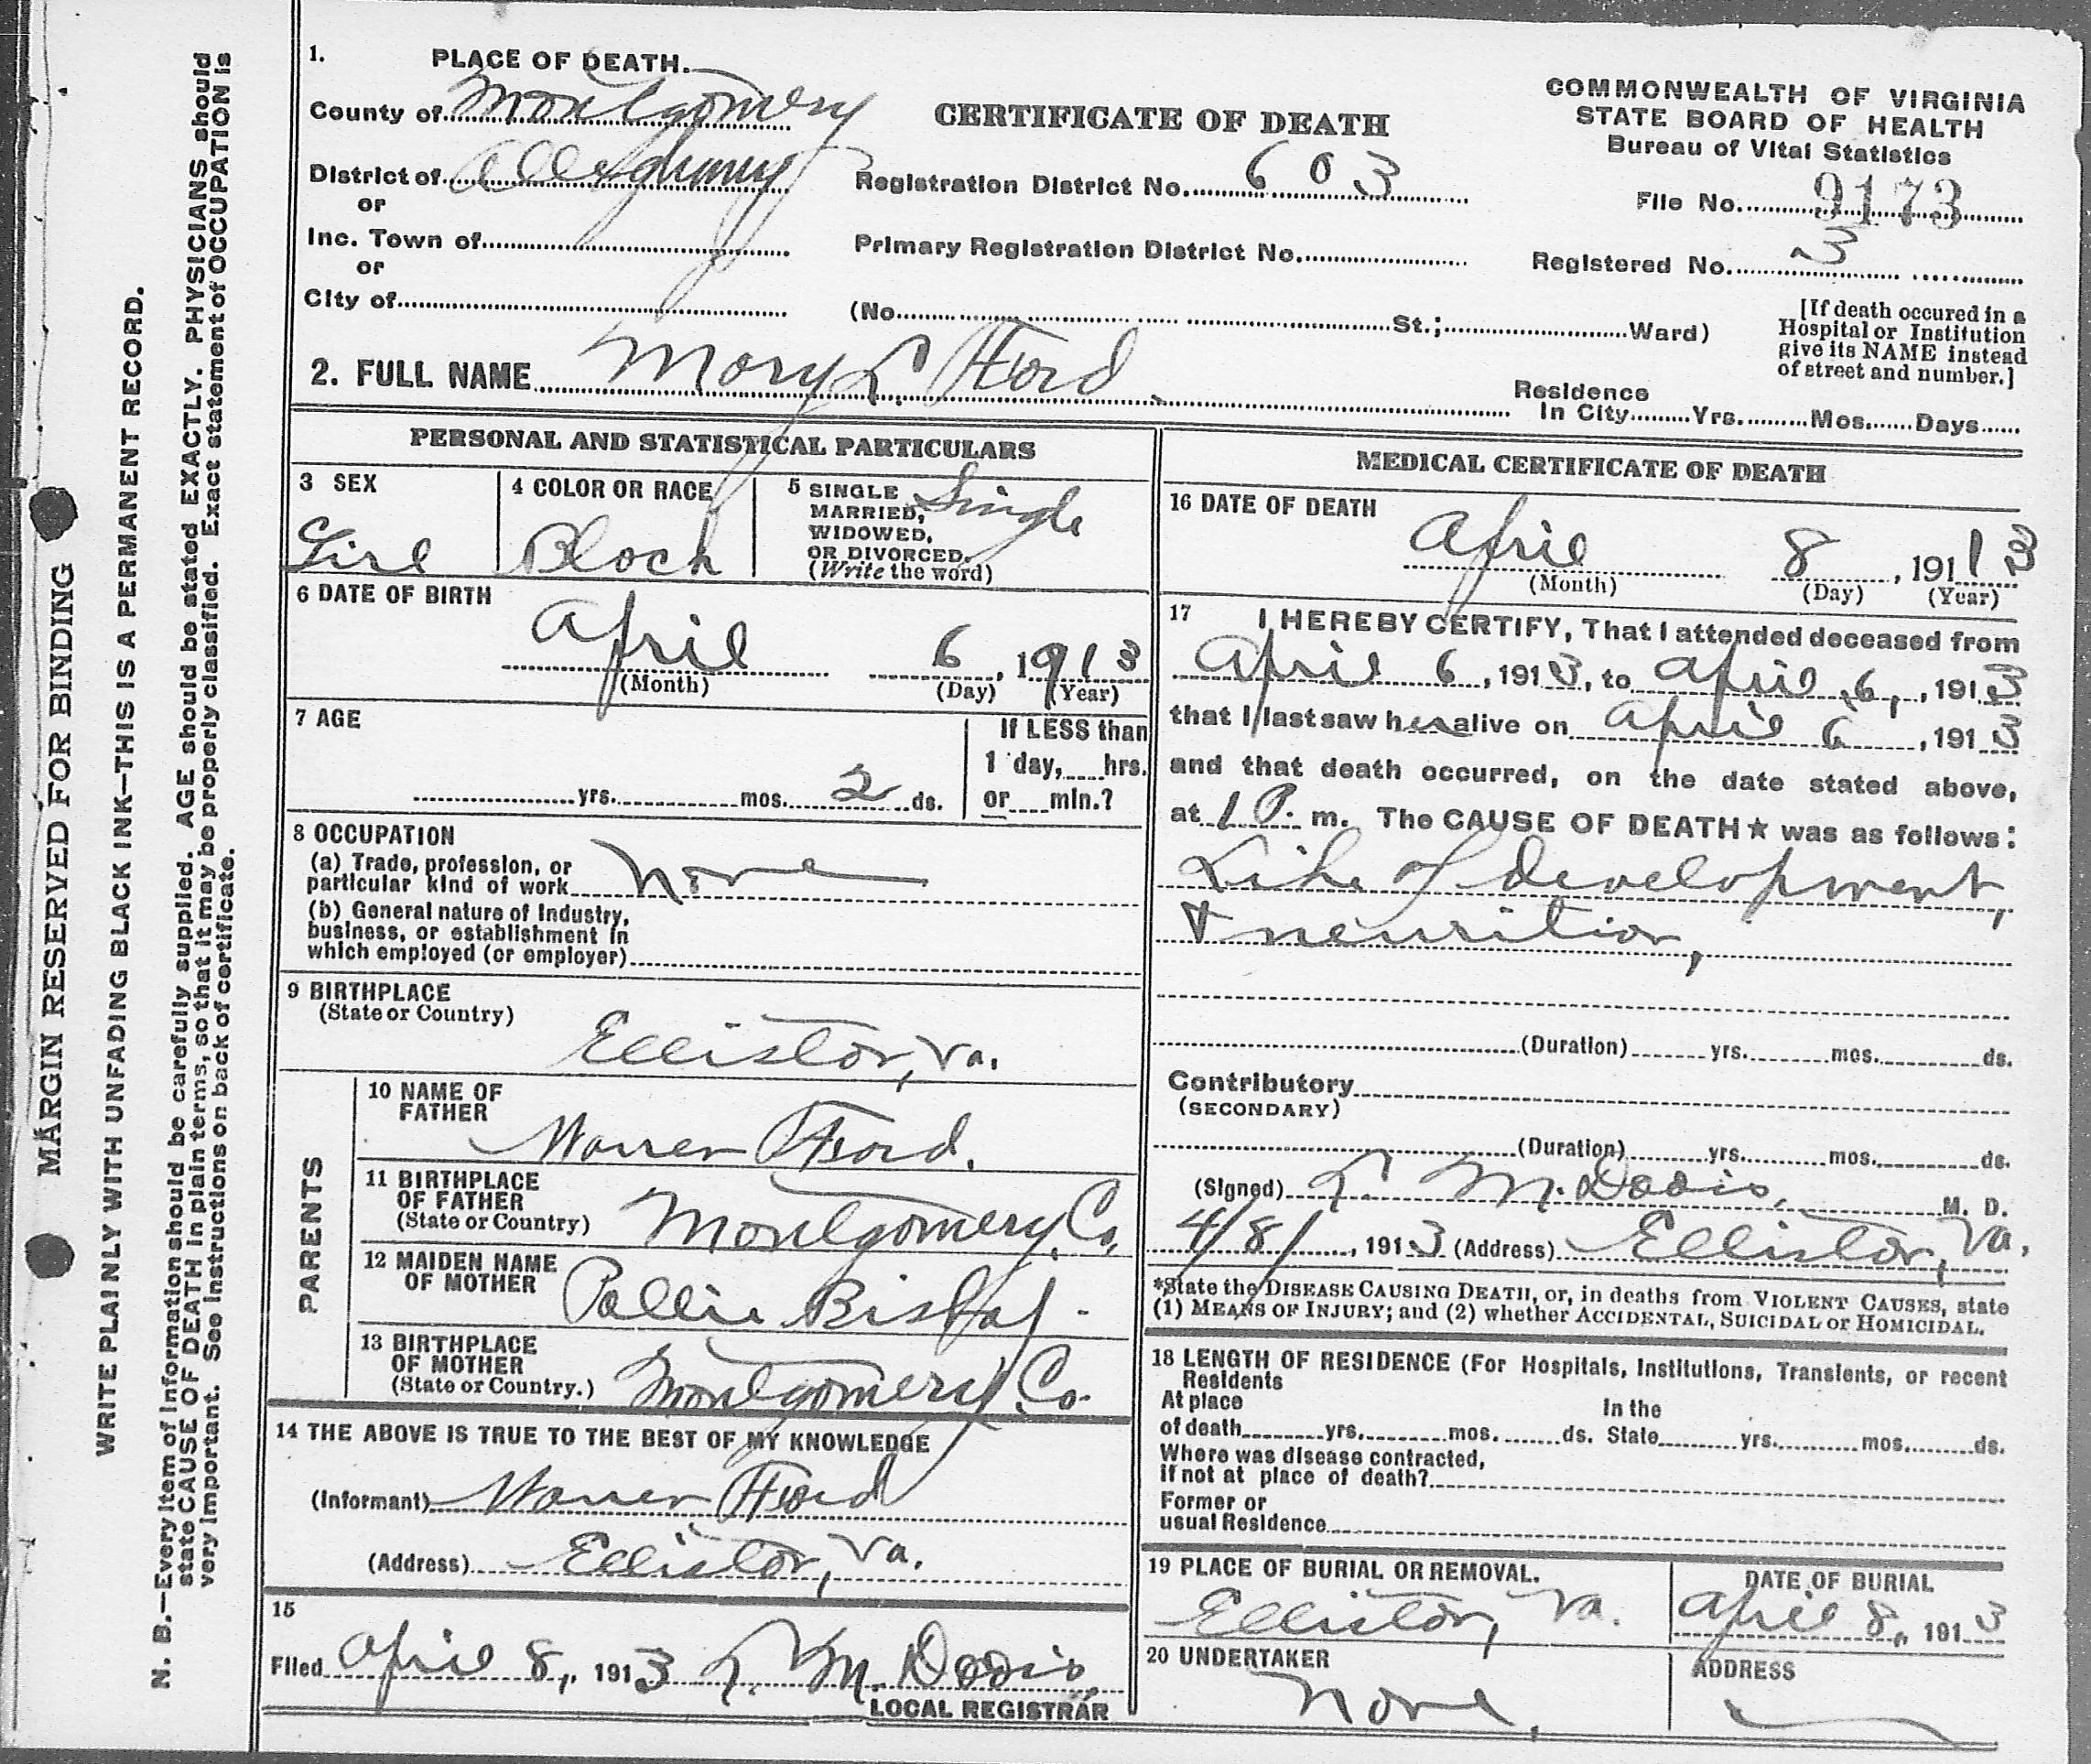 1. PLACE OF DEATH.
County of Montgomery
District of Alleghany
or
Inc. Town of
or
City of
CERTIFICATE OF DEATH
Registration District No. 603
Primary Registration District No.
(No. St.; Ward)
COMMONWEALTH OF VIRGINIA
STATE BOARD OF HEALTH
Bureau of Vital Statistics
File No. 9173
Registered No. 3
[If death occured in a
Hospital or Institution
give its NAME instead
of street and number.]
2. FULL NAME Mary L. Ford
Residence
In City Yrs. Mos. Days
PERSONAL AND STATISTICAL PARTICULARS
3 SEX
Girl
4 COLOR OR RACE
Black
5 SINGLE
MARRIED,
WIDOWED,
OR DIVORCED.
(Write the word)
Single
6 DATE OF BIRTH
April 6, 1913
(Month) (Day) (Year)
7 AGE
yrs. mos. 2 ds.
If LESS than
1 day, hrs.
or min.?
8 OCCUPATION
(a) Trade, profession, or
particular kind of work None
(b) General nature of Industry,
business, or establishment in
which employed (or employer)
9 BIRTHPLACE
(State or Country)
Elliston, Va.
PARENTS
10 NAME OF
FATHER
Warren Ford.
11 BIRTHPLACE
OF FATHER
(State or Country) Montgomery, Co.
12 MAIDEN NAME
OF MOTHER Pollie Bishop.
13 BIRTHPLACE
OF MOTHER
(State or Country.) Montgomery Co.
14 THE ABOVE IS TRUE TO THE BEST OF MY KNOWLEDGE
(Informant) Warren Ford
(Address) Elliston, Va.
15
Filed April 8, 1913 L. M. Dodis
LOCAL REGISTRAR
MEDICAL CERTIFICATE OF DEATH
16 DATE OF DEATH
April 8, 19113
(Month) (Day) (Year)
17 I HEREBY CERTIFY, That I attended deceased from
April 6, 1913, to April 6, 1913
that I last saw her alive on April 6, 1913
and that death occurred, on the date stated above,
at 1 P. m. The CAUSE OF DEATH★ was as follows:
Like of development,
& neurition,
(Duration) yrs. mos. ds.
Contributory
(SECONDARY)
(Duration) yrs. mos. ds.
(Signed) L. M. Dodis, M. D.
4/8/, 1913 (Address) Elliston, Va.
*State the DISEASE CAUSING DEATH, or, in deaths from VIOLENT CAUSES, state
(1) MEANS OF INJURY; and (2) whether ACCIDENTAL, SUICIDAL or HOMICIDAL.
18 LENGTH OF RESIDENCE (For Hospitals, Institutions, Transients, or recent
Residents
At place In the
of death yrs. mos. ds. State yrs. mos. ds.
Where was disease contracted,
if not at place of death?
Former or
usual Residence
19 PLACE OF BURIAL OR REMOVAL.
Elliston, Va.
DATE OF BURIAL
April 8, 1913
20 UNDERTAKER
None,
ADDRESS
MARGIN RESERVED FOR BINDING
WRITE PLAINLY WITH UNFADING BLACK INK—THIS IS A PERMANENT RECORD.
N. B.—Every item of information should be carefully supplied. AGE should be stated EXACTLY. PHYSICIANS should
state CAUSE OF DEATH in plain terms, so that it may be properly classified. Exact statement of OCCUPATION is
very important. See instructions on back of certificate.